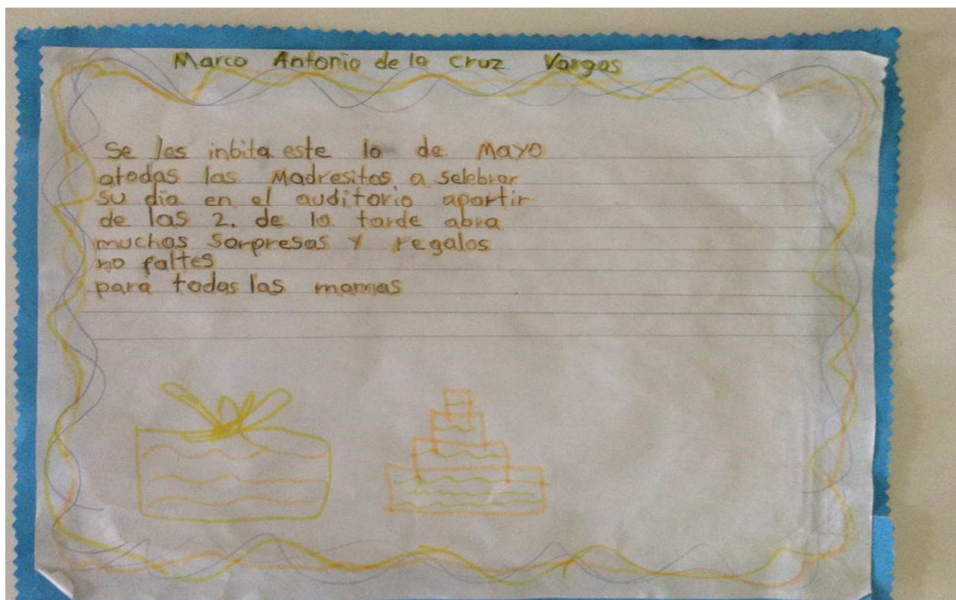 Marco Antonio de la Cruz Vargas
Se les inbita este 10 de Mayo
atodas las Madresitas a selebrar
su dia en el auditorio apartir
de las 2. de la tarde abra
muchas Sorpresas y regalos
no faltes
para todas las mamas